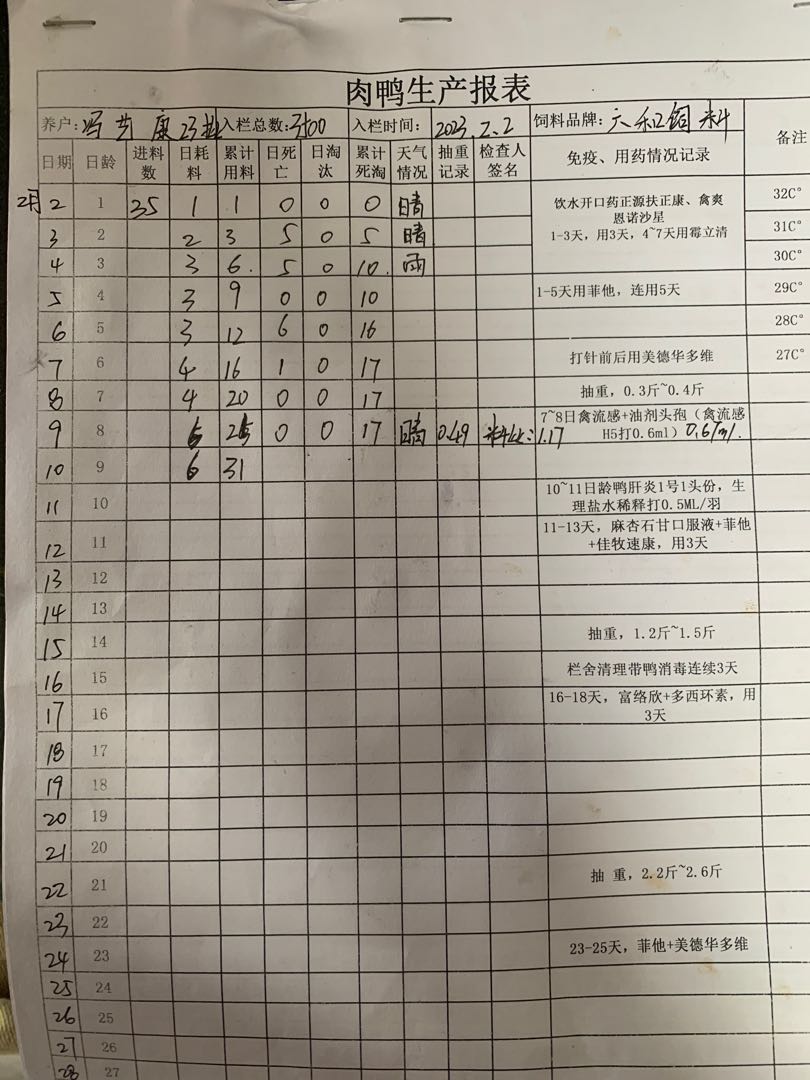 肉鸭生产报表
养户: 冯 康 23批 入栏总数: 3500 入栏时间: 2023.2.2 饲料品牌: 六和饲料 备注
日期 日龄 进料数 日耗料 累计用料 日死亡 日淘汰 累计死淘 天气情况 抽重记录 检查人签名 免疫、用药情况记录
2月 2 1 35 1 1 0 0 0 晴 饮水开口药正源扶正康、禽爽 32C°
恩诺沙星
3 2 2 3 5 0 5 晴 1-3天，用3天，4~7天用霉立清 31C°
4 3 3 6. 5 0 10. 雨 30C°
5 4 3 9 0 0 10 1-5天用菲他，连用5天 29C°
6 5 3 12 6 0 16 28C°
7 6 4 16 1 0 17 打针前后用美德华多维 27C°
8 7 4 20 0 0 17 抽重，0.3斤~0.4斤
9 8 5 25 0 0 17 晴 0.49 料比: 1.17 7~8日禽流感+油剂头孢（禽流感
H5打0.6ml）0.67ml.
10 9 6 31
11 10 10~11日龄鸭肝炎1号1头份，生
理盐水稀释打0.5ML/羽
12 11 11-13天，麻杏石甘口服液+菲他
+佳牧速康，用3天
13 12
14 13
15 14 抽重，1.2斤~1.5斤
16 15 栏舍清理带鸭消毒连续3天
17 16 16-18天，富络欣+多西环素，用
3天
18 17
19 18
20 19
21 20
22 21 抽 重，2.2斤~2.6斤
23 22
24 23 23-25天，菲他+美德华多维
25 24
26 25
27 26
28 27